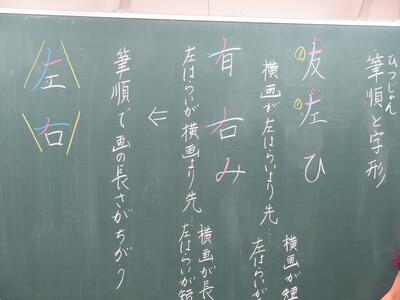 ひつじゅん
筆順と字形
① 友 ① 左 ひ
横画が左はらいより先…
横画が
左はらいが
有 右 み
左はらいが横画より先…
横画が長
左はらいが短
⇐
筆順で画の長さがちがう
〈左 右〉